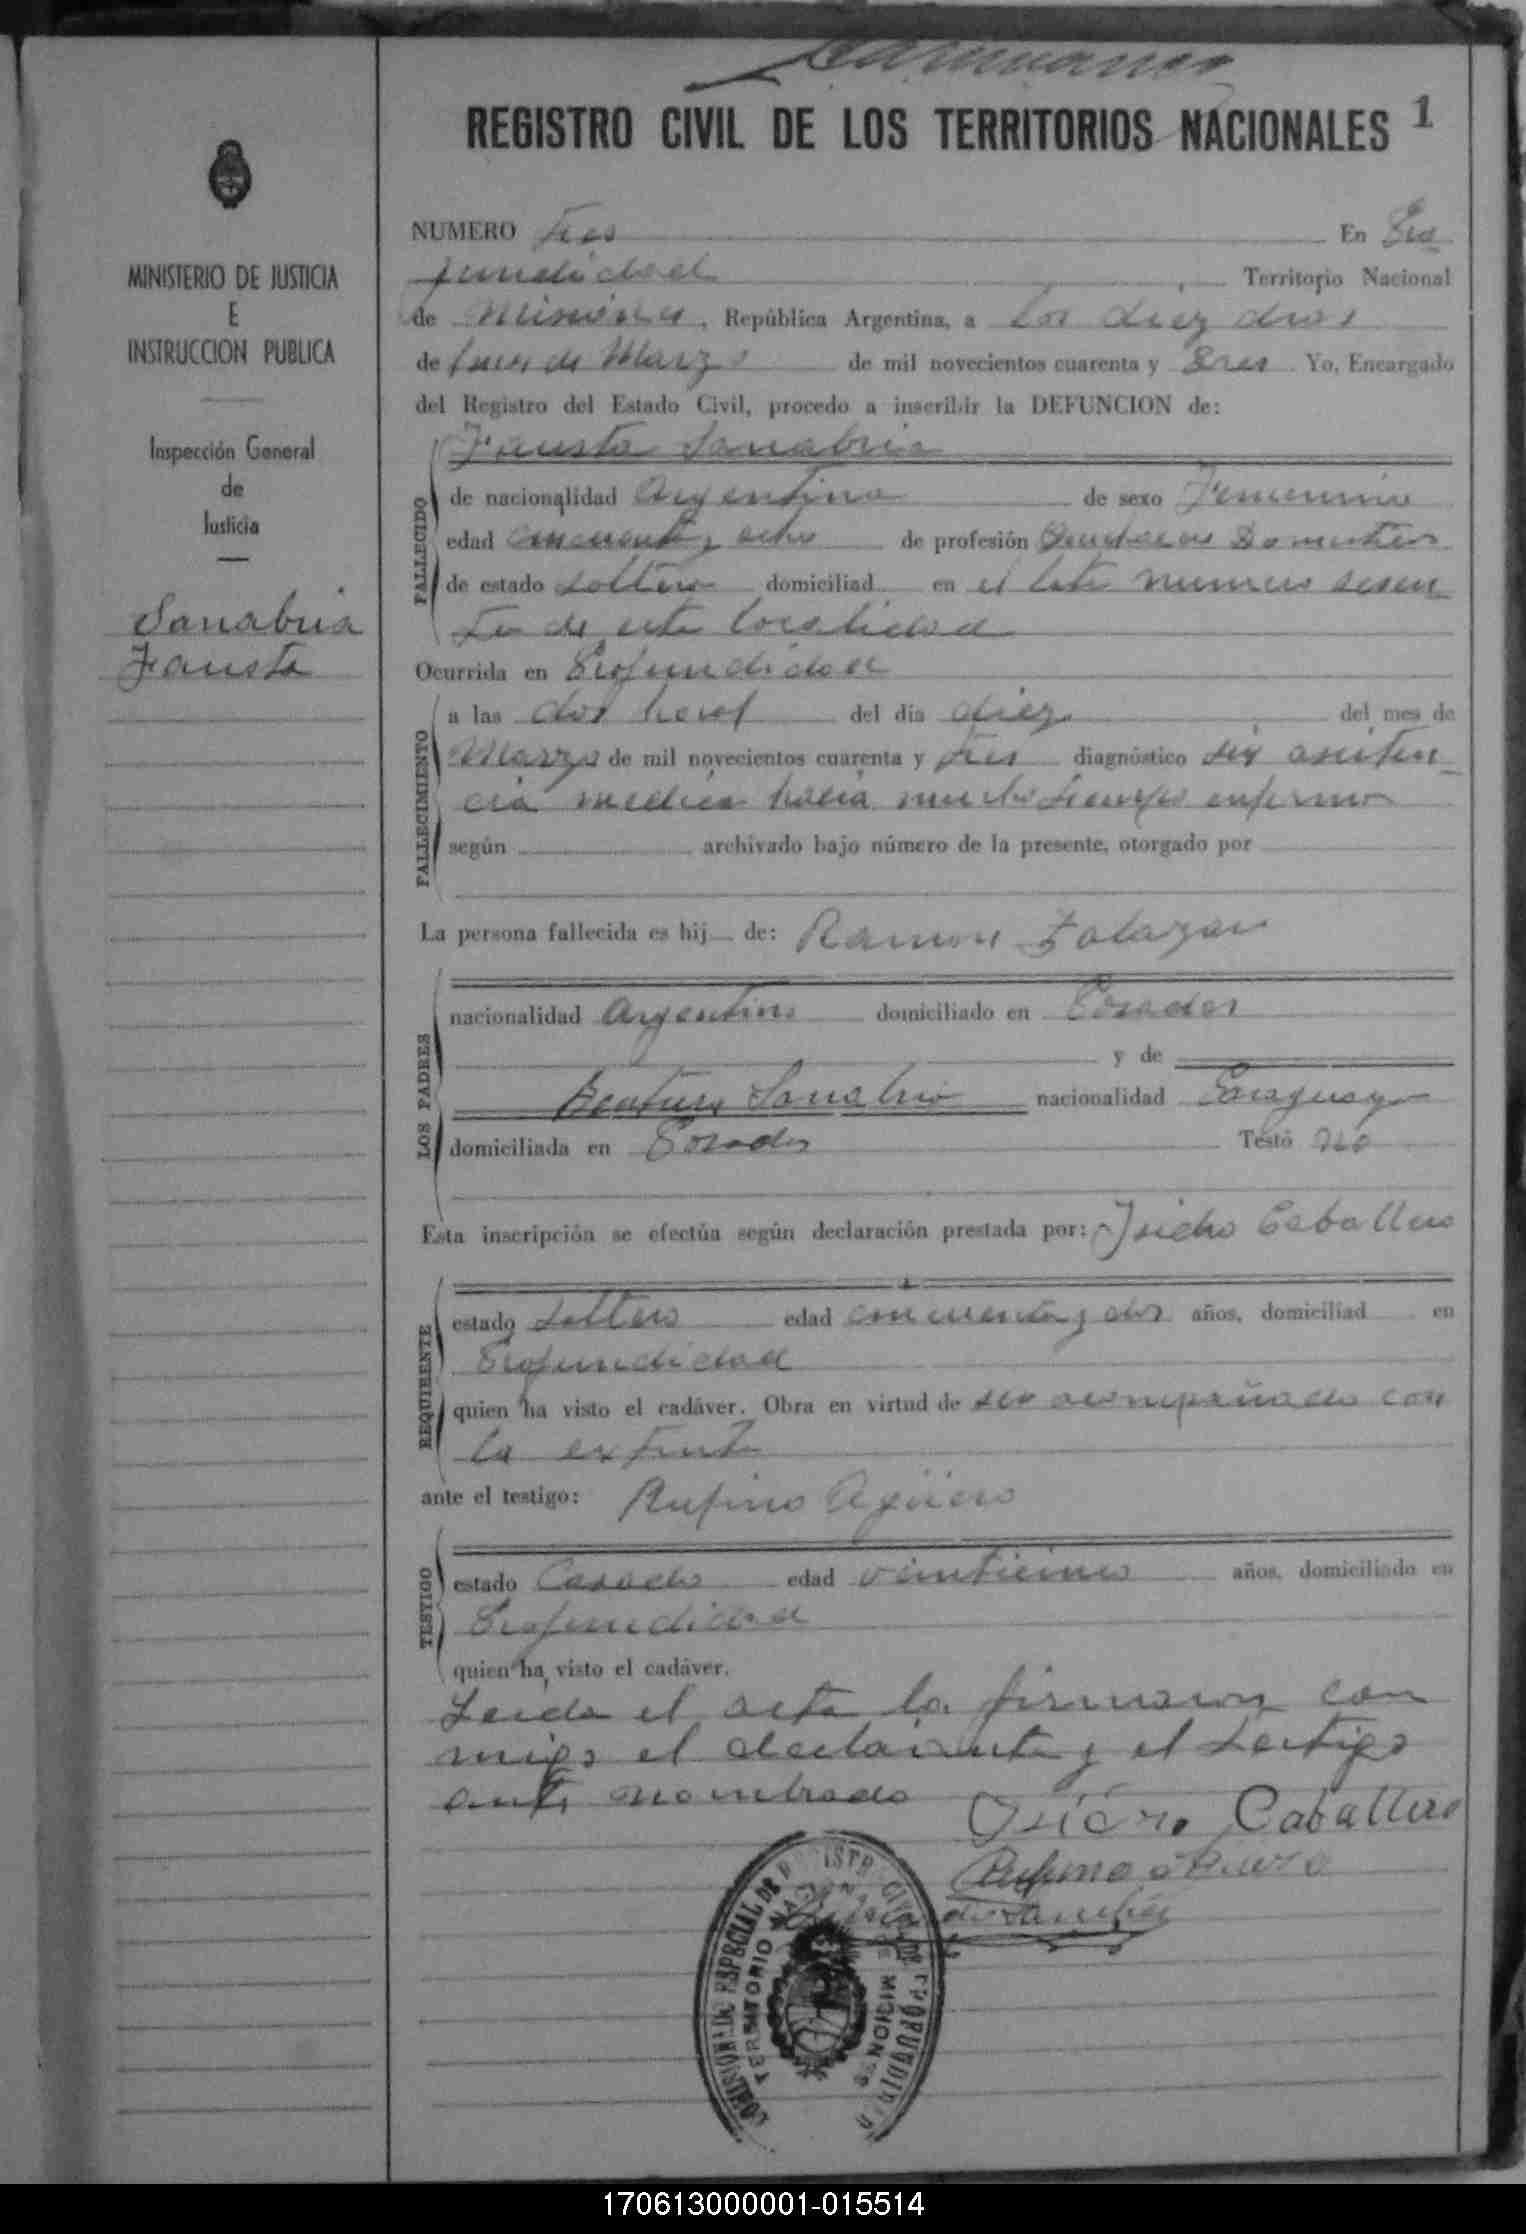 REGISTRO CIVIL DE LOS TERRITORIOS NACIONALES 1
MINISTERIO DE JUSTICIA
E
INSTRUCCION PUBLICA
Inspección General
de
Justicia
Sanabria
Fausta
NUMERO tres En Pro
fundidad Territorio Nacional
de Misiones, República Argentina, a los diez dias
de mes de Marzo de mil novecientos cuarenta y tres. Yo, Encargado
del Registro del Estado Civil, procedo a inscribir la DEFUNCION de:
Fausta Sanabria
FALLECIDO
de nacionalidad Argentina de sexo Femenino
edad cincuenta y ocho de profesión Domestico
de estado soltera domiciliad en el lote numero sesen
ta de esta localidad
Ocurrida en Profundidad
FALLECIMIENTO
a las dos horas del día diez del mes de
Marzo de mil novecientos cuarenta y tres diagnóstico sin asisten
cia medica hacia mucho tiempo enferma
según archivado bajo número de la presente, otorgado por
La persona fallecida es hij de: Ramon Zalazar
LOS PADRES
nacionalidad Argentino domiciliado en Posadas
y de
Sanabria nacionalidad Paraguaya
domiciliada en Posadas Testó no
Esta inscripción se efectúa según declaración prestada por: Isidro Caballero
REQUIRENTE
estado soltero edad cincuenta y dos años, domiciliad en
Profundidad
quien ha visto el cadáver. Obra en virtud de ser acompañado con
la extinta
ante el testigo: Rufino Agüero
TESTIGO
estado Casado edad veinticinco años, domiciliado en
Profundidad
quien ha visto el cadáver.
Leida el acta la firmaron con
migo el declarante y el testigo
ante nombrado
Isidro Caballero
Rufino Aguero
COMISIONADO ESPECIAL DE REGISTRO CIVIL DE PROFUNDIDAD
TERRITORIO NACIONAL DE MISIONES
170613000001-015514